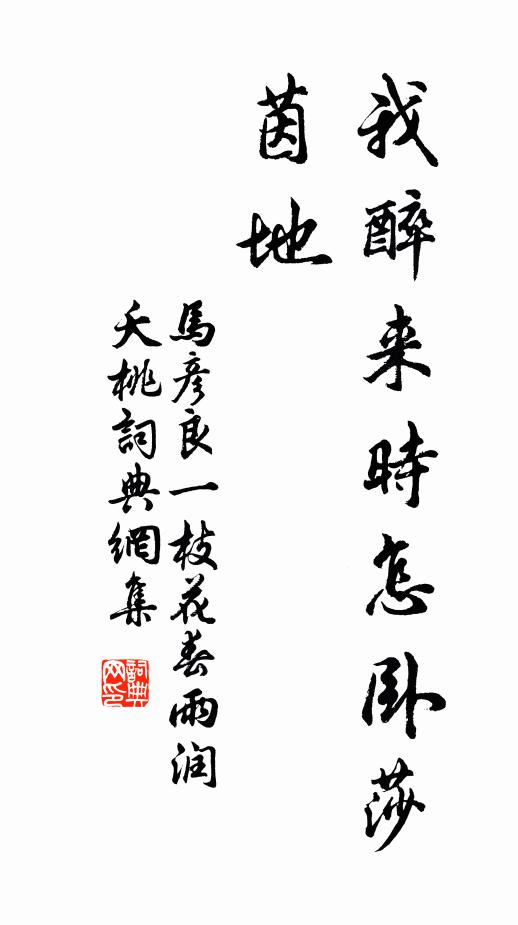 我醉来時怎卧莎
茵地
馬彦良一枝花春雨润
夭桃詞典網集
詞典
网印